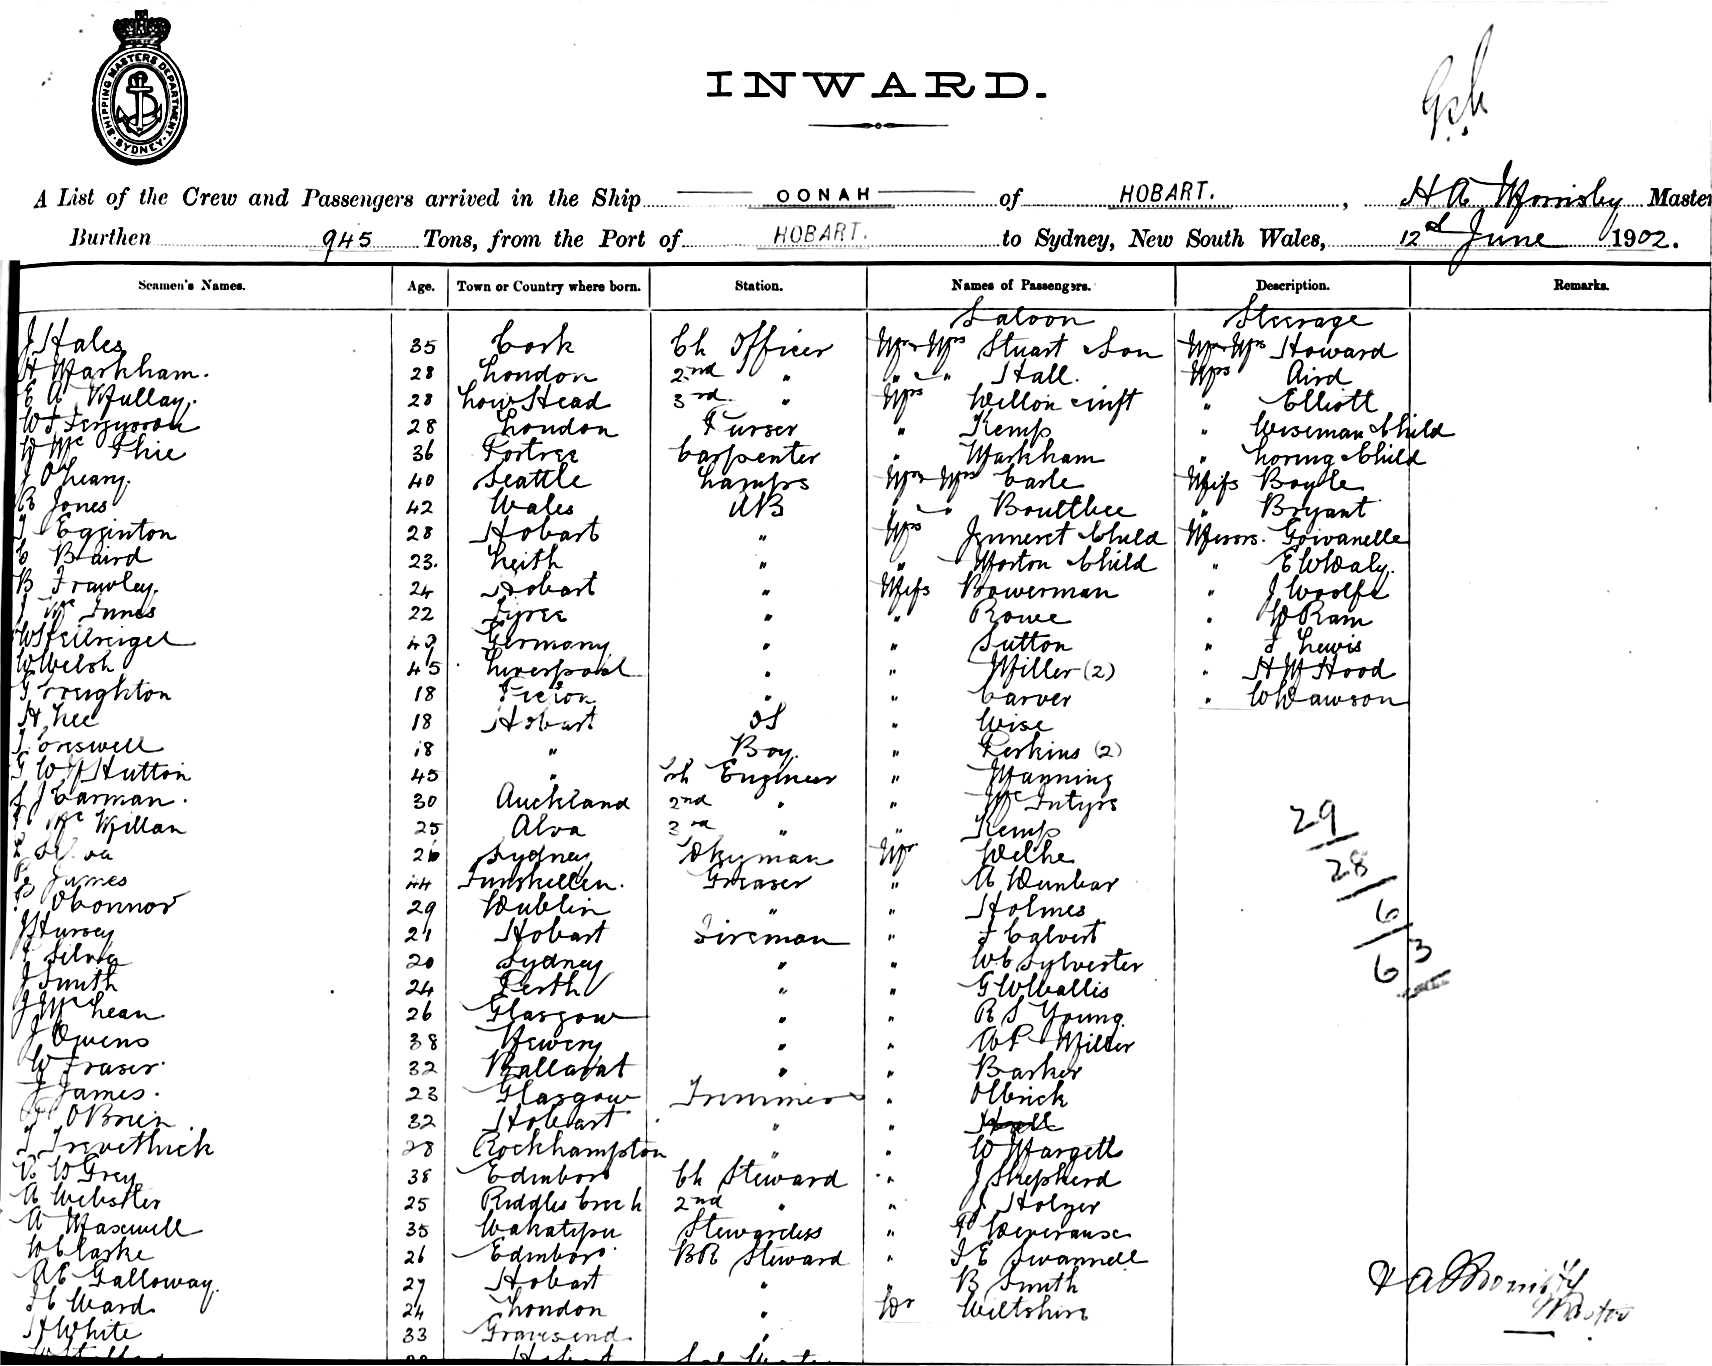 SHIPPING MASTERS DEPARTMENT · SYDNEY ·
INWARD.
A List of the Crew and Passengers arrived in the Ship OONAH of HOBART. , H A Master
Burthen 945 Tons, from the Port of HOBART. to Sydney, New South Wales, 12 June 1902.
Seamen's Names. Age. Town or Country where born. Station. Names of Passengers. Description. Remarks.
Saloon Steerage
J Hales 35 Cork Ch Officer Mr & Mrs Stuart & Son Mr & Mrs Howard
H Markham. 28 London 2nd " " " Hall. Mrs Aird
E A Mullay. 28 Head 3rd " Mrs " Elliott
W Ferguson 28 London Purser " Kemp " Wiseman & Child
Mc Phie 36 Portree Carpenter " Markham " Loring & Child
J O'Leary. 40 Seattle Lamps Mr & Mrs Earle Miss Boyle
Jones 42 Wales AB " " Boultbee " Bryant
Egginton 28 Hobart " Mrs & Child Messrs. Goivanelle
Baird 23. Leith " " Morton & Child " E W Daly.
B Frawley. 24 Hobart " Miss Bowerman " J Woolfe
J McInnes 22 Tyree " " Rowe " W Ram
Germany " " Sutton " Lewis
W Welsh 45 Liverpool " " Miller (2) " H M Hood
Creighton 18 " " Carver " W Dawson
H Lee 18 Hobart OS " Wise
Creswell 18 " Boy. " Perkins (2)
G W Hutton 45 " Ch Engineer " Manning
J Carman. 30 Auckland 2nd " " McIntyre
Mc Millan 25 Alva 3rd " " Kemp 29
26 Sydney Mr 28
James 44 Greaser " A Dunbar
O'Connor 29 Dublin " " Holmes 6
Hursey 21 Hobart Fireman " Calvert 3
Silva 20 Sydney " " W C Sylvester 6
J Smith 24 Perth " " G W Wallis
J McLean 26 Glasgow " " R S Young
J Owens 38 Newery " " Miller
W Fraser. 32 Ballarat " " Barker
J James. 23 Glasgow Trimmer " Olbrick
O'Brien 32 Hobart " " Hall
Trevethick 28 Rockhampton " " W Margetts
W Grey 38 Edinboro Ch Steward " J Shepherd
A Webster 25 Riddles Creek 2nd " " J Holyer
A Maxwell 35 Wakatipu Stewardess "
W Clarke 26 Edinboro BR Steward " E Swannell
A E Galloway. 27 Hobart " " B Smith
Ward 24 London " Dr Wiltshire
H White 33 Gravesend "
Hobart
Master